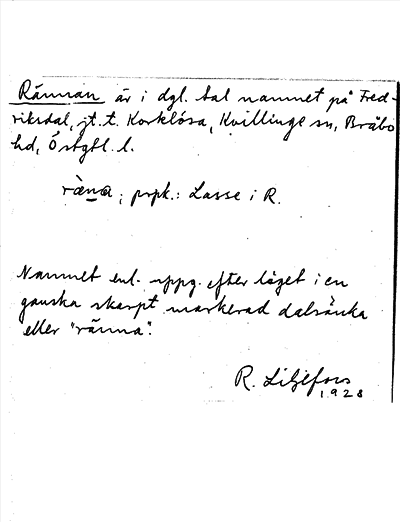 Rännan är i dgl. tal namnet på Fred-
riksdal, jt. t. Korklösa, Kvillinge sn, Bråbo
hd, Östgtl. l.
ræna; prpk.: Lasse i R.
Namnet enl. uppg. efter läget i en
ganska skarpt markerad dalsänka
eller "ränna".
R. Liljefors
1928